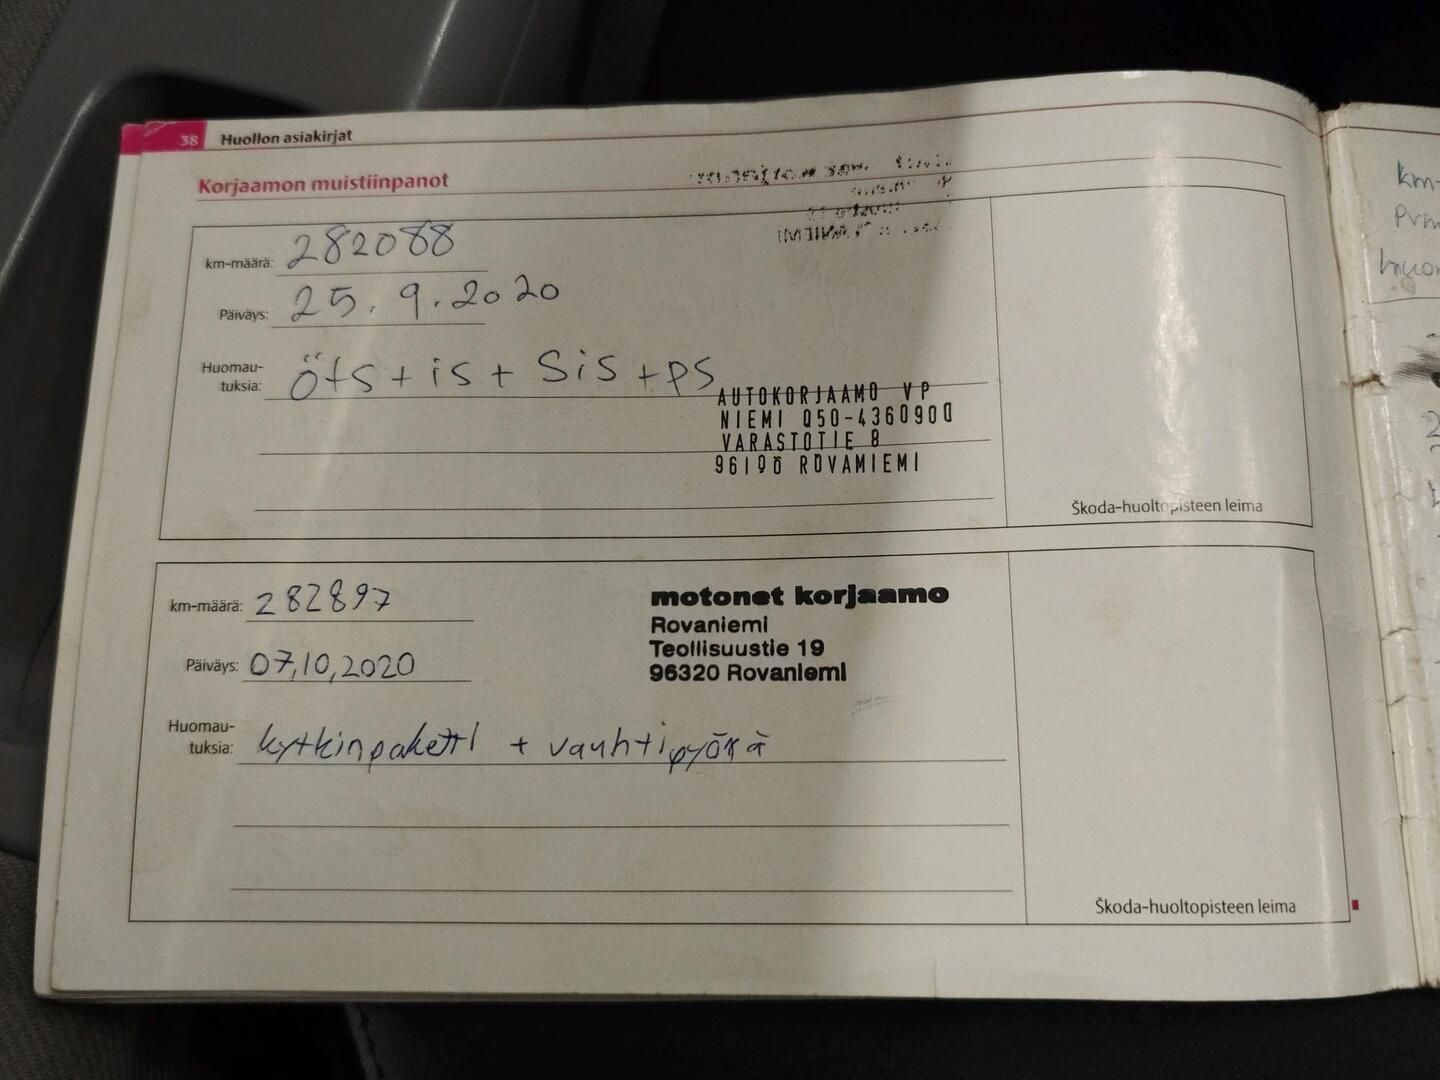 38 Huollon asiakirjat
Korjaamon muistiinpanot
km-määrä: 282088
Päiväys: 25.9.2020
Huomau-
tuksia: öts + is + Sis + ps
AUTOKORJAAMO VP
NIEMI 050-4360900
VARASTOTIE 8
96190 ROVAMIEMI
Škoda-huoltopisteen leima
km-määrä: 282897
Päiväys: 07,10,2020
Huomau-
tuksia: kytkinpaketti + vauhtipyörä
motonet korjaamo
Rovaniemi
Teollisuustie 19
96320 Rovaniemi
Škoda-huoltopisteen leima
km-